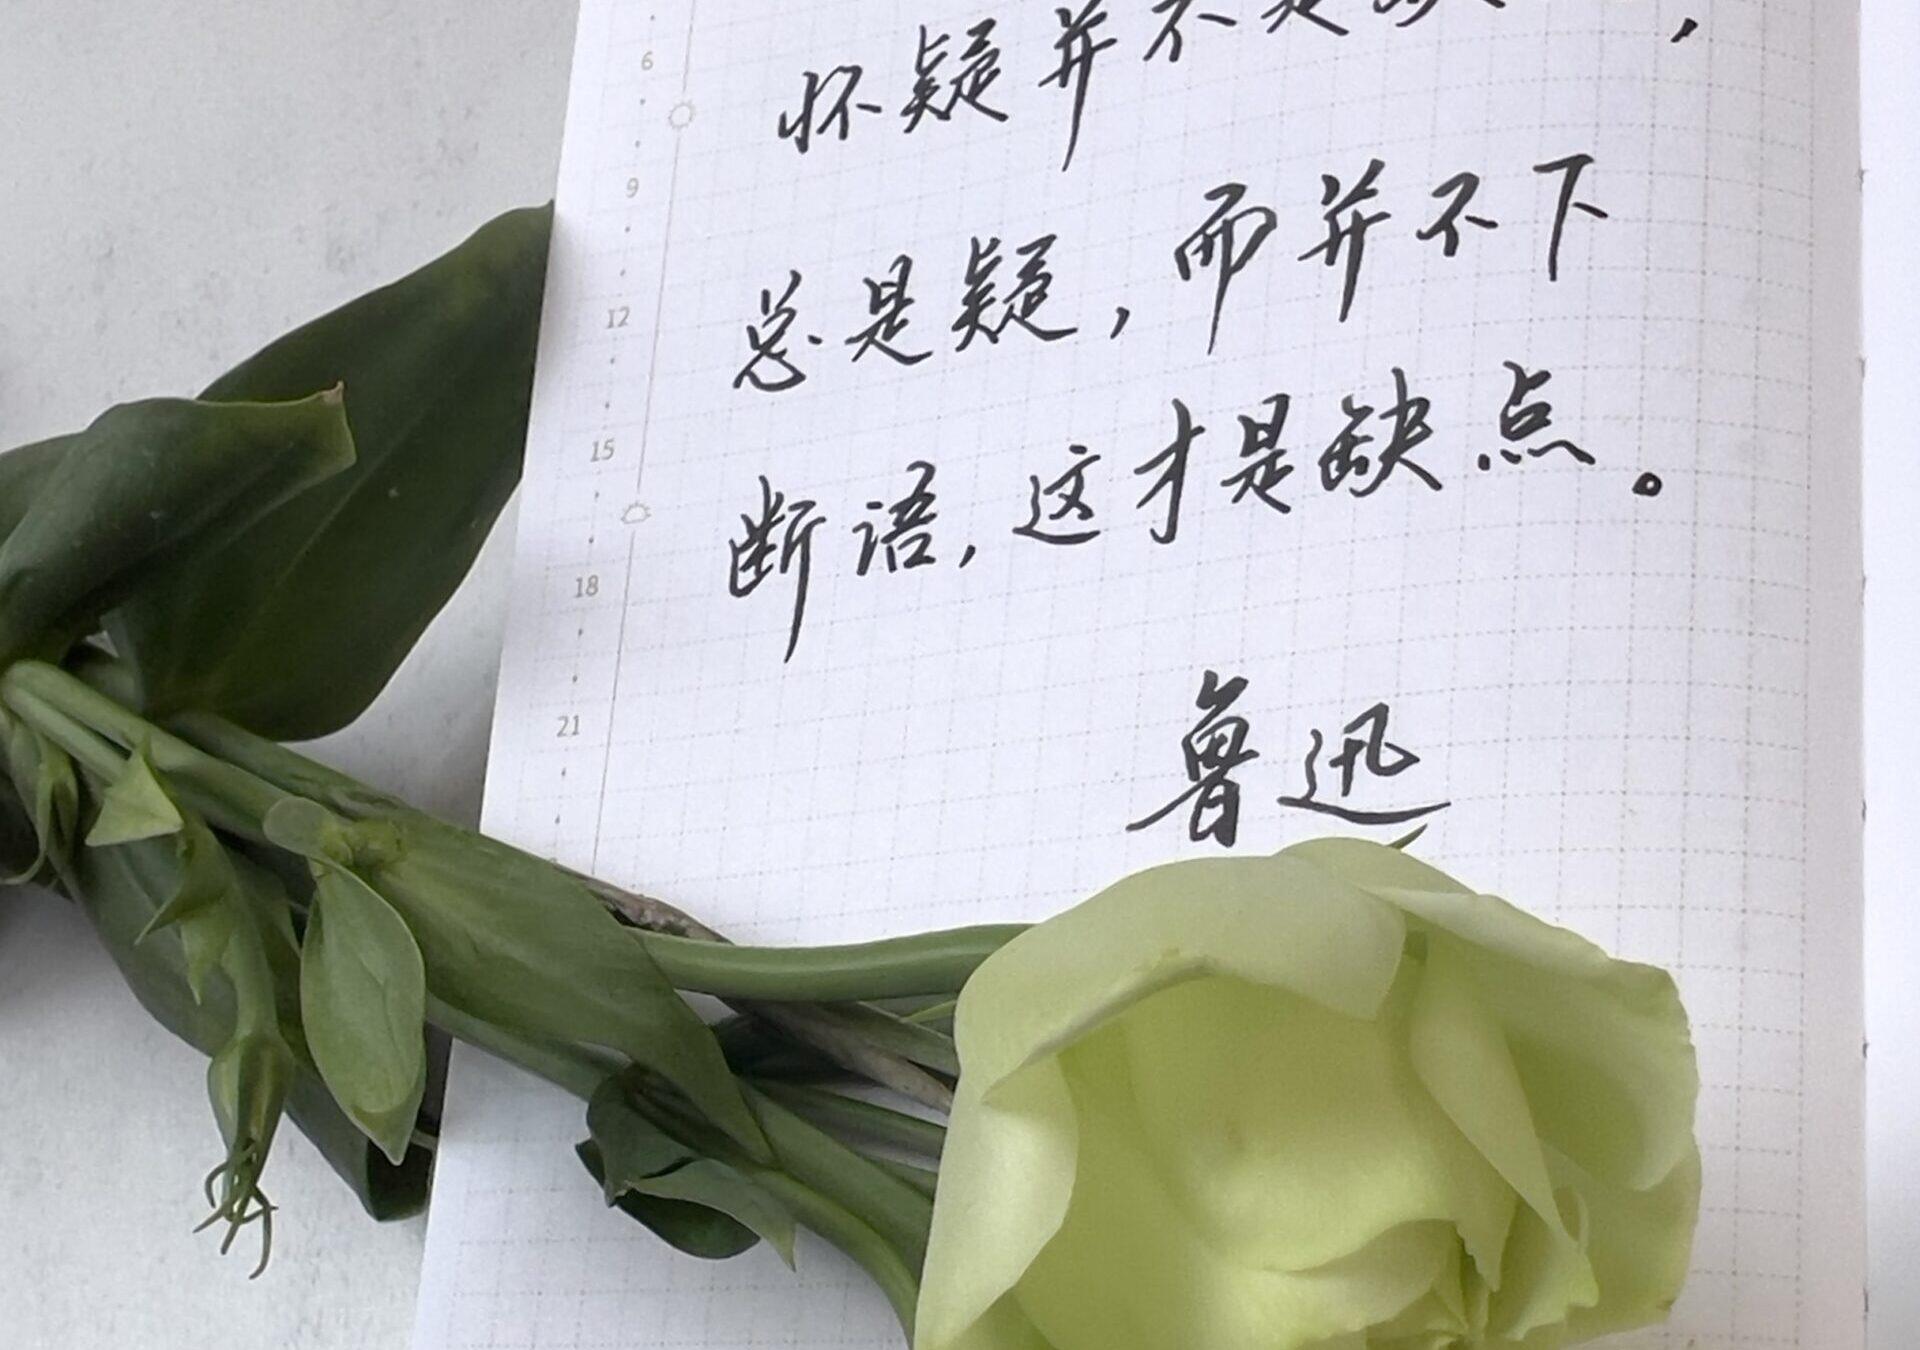 6
怀疑并不是缺
，
9
总是疑，而并不下
12
断语，这才是缺点。
15
18
鲁迅
21